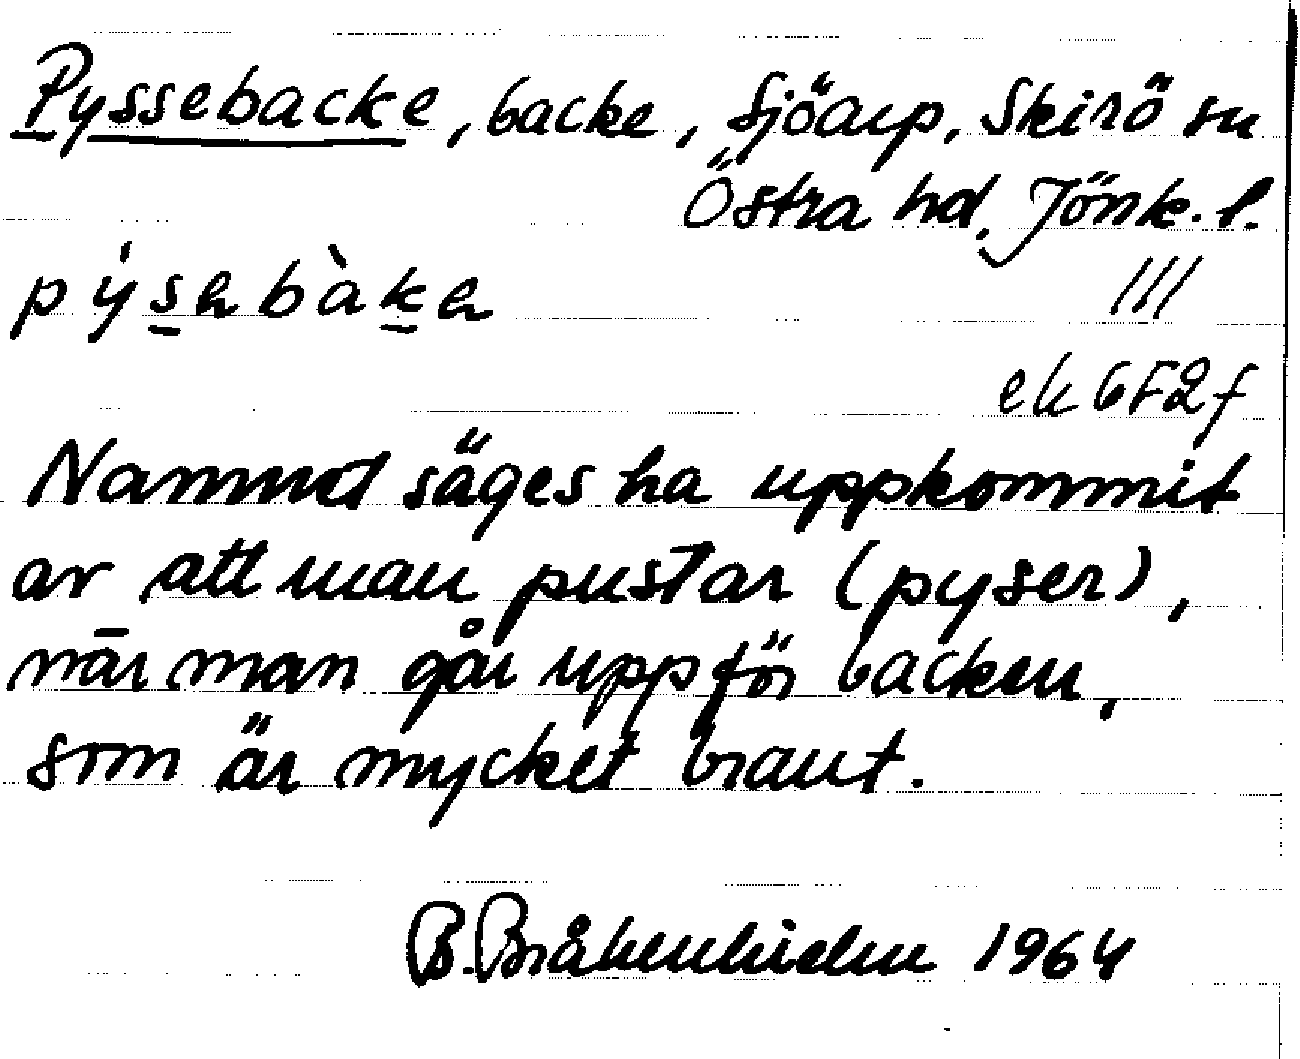 Pyssebacke, backe, Sjöarp, Skirö sn
Östra hd, Jönk. l.
pýsebàke
///
ek 6F2f
Namnet säges ha uppkommit
av att man pustar (pyser),
när man går uppför backen,
som är mycket brant.
B. 1964